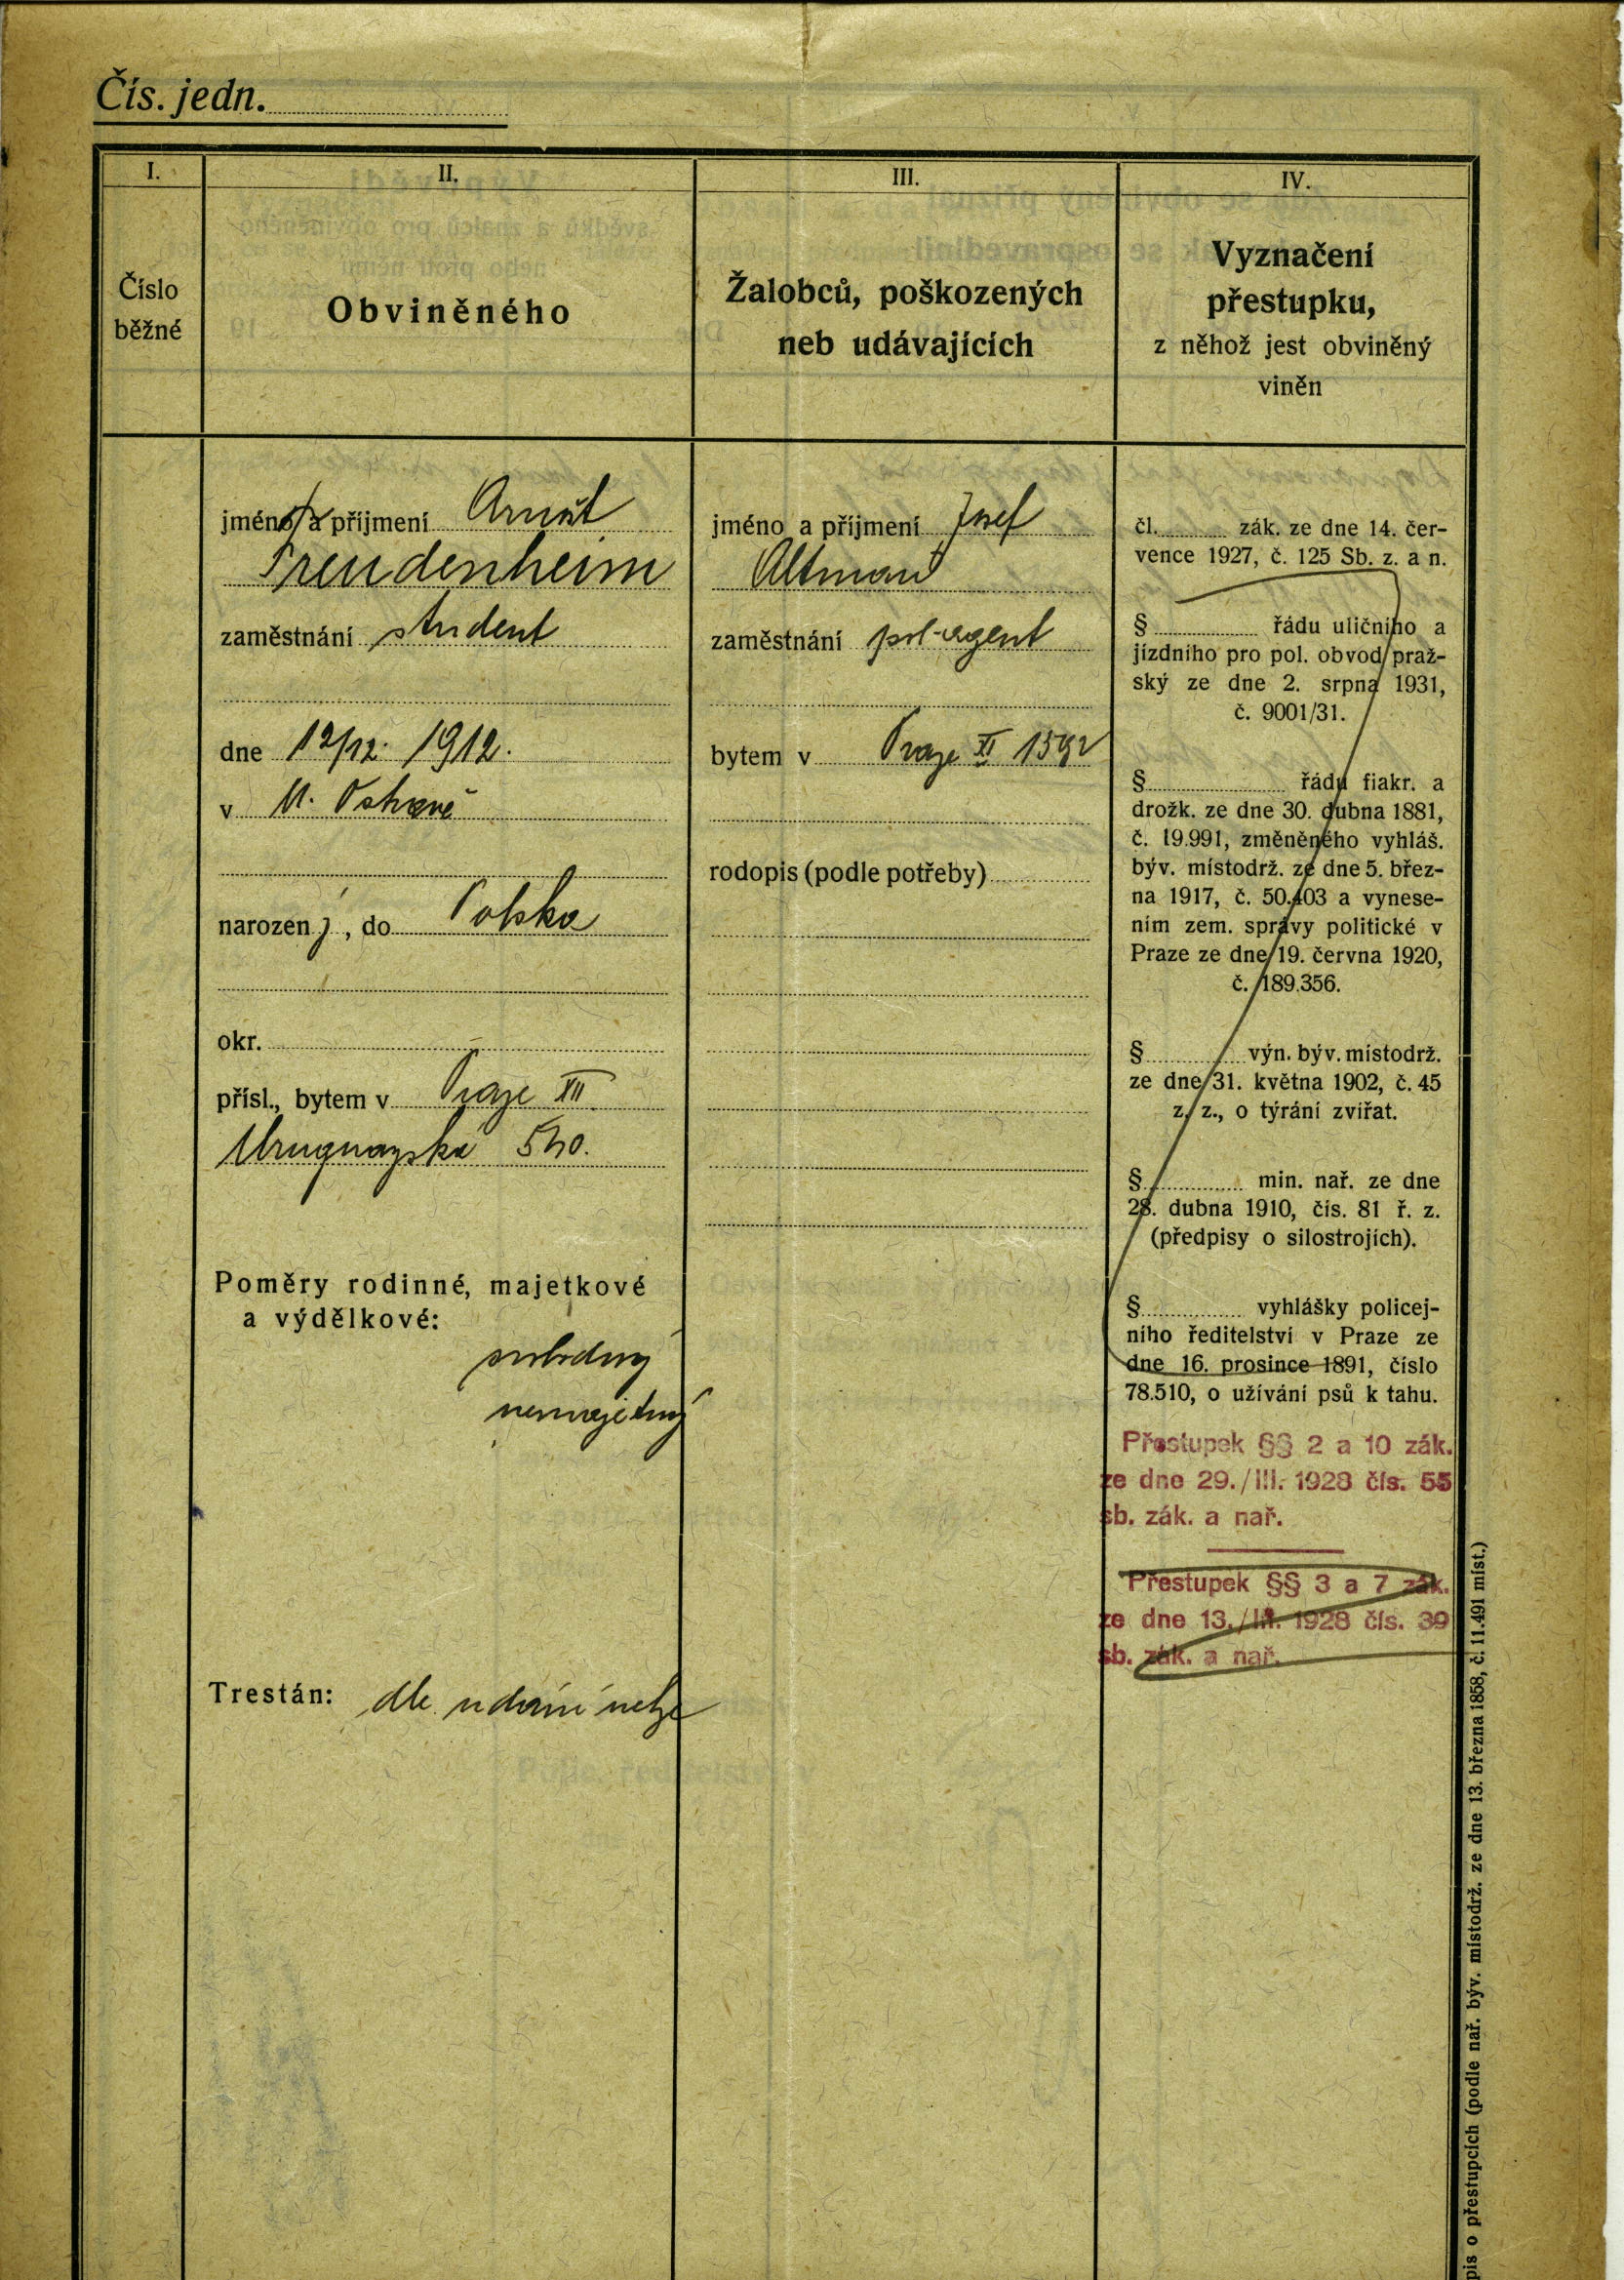 Čís. jedn.
I.
II.
III.
IV.
Číslo
běžné
Obviněného
Žalobců, poškozených
neb udávajících
Vyznačení
přestupku,
z něhož jest obviněný
viněn
jméno a příjmení Arnošt
Freudenheim
zaměstnání student
dne 12/12. 1912.
v M. Ostravě
narozený, do Polska
okr.
přísl., bytem v Praze XII
Uruguayská 540.
Poměry rodinné, majetkové
a výdělkové:
svobodný
nemajetný
Trestán: dle udání nebyl
jméno a příjmení Josef
Altman
zaměstnání pol. agent
bytem v Praze XI 1592
rodopis (podle potřeby)
čl. zák. ze dne 14. čer-
vence 1927, č. 125 Sb. z. a n.
§ řádu uličního a
jízdního pro pol. obvod praž-
ský ze dne 2. srpna 1931,
č. 9001/31.
§ řádu fiakr. a
drožk. ze dne 30. dubna 1881,
č. 19.991, změněného vyhláš.
býv. místodrž. ze dne 5. břez-
na 1917, č. 50.403 a vynese-
ním zem. správy politické v
Praze ze dne 19. června 1920,
č. 189.356.
§ výn. býv. místodrž.
ze dne 31. května 1902, č. 45
z. z., o týrání zvířat.
§ min. nař. ze dne
28. dubna 1910, čís. 81 ř. z.
(předpisy o silostrojích).
§ vyhlášky policej-
ního ředitelství v Praze ze
dne 16. prosince 1891, číslo
78.510, o užívání psů k tahu.
Přestupek §§ 2 a 10 zák.
ze dne 29./III. 1928 čís. 55
sb. zák. a nař.
Přestupek §§ 3 a 7 zák.
ze dne 13./III. 1928 čís. 39
sb. zák. a nař.
pis o přestupcích (podle nař. býv. místodrž. ze dne 13. března 1858, č. 11.491 míst.)